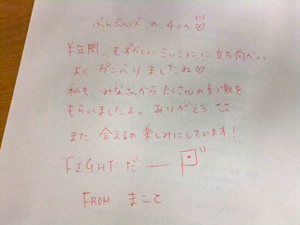 ぷれぷれズの4人へ
半年間、むずかしいミッションに立ち向かい
よく ガンバりましたね♡
私も、みなさんから たくさんの 勇気を
もらいましたよ。ありがとう
また 会えるの 楽しみにしています!
FIGHT だ――
FROM まこと